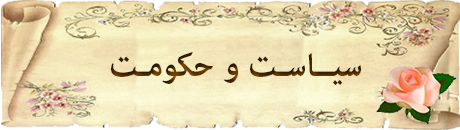 سیاست و حکومت